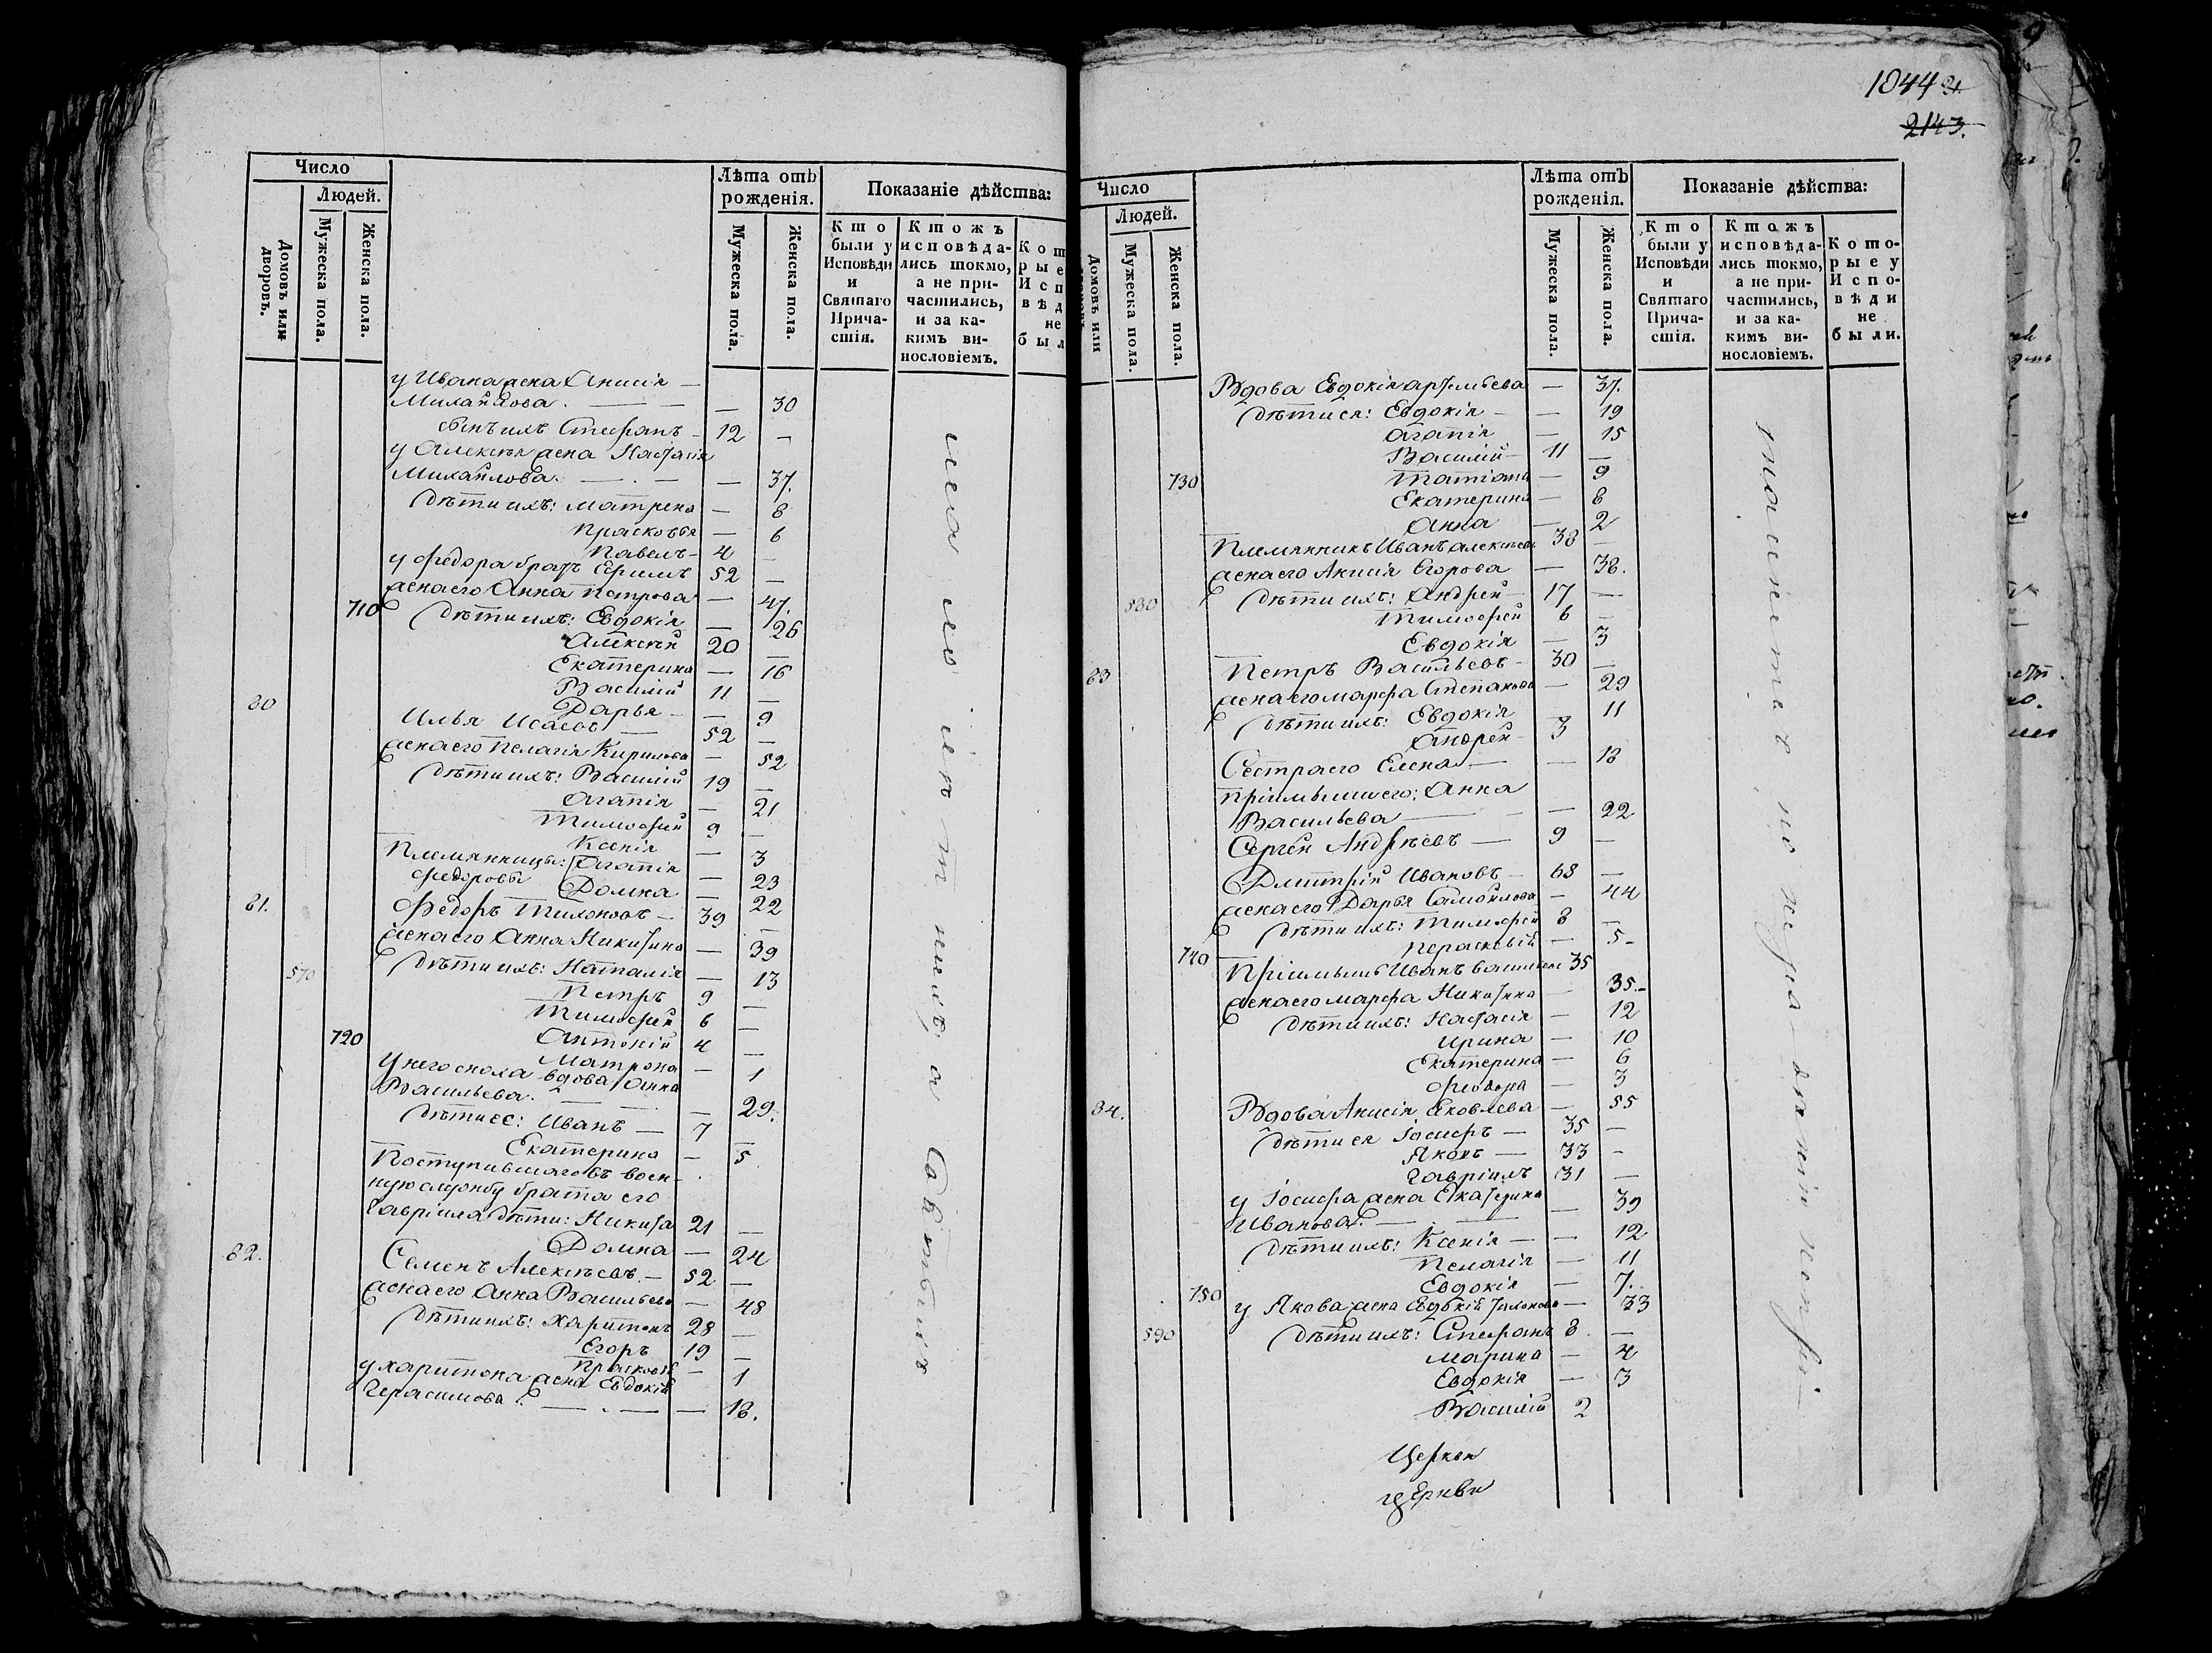 Число
Людей.
Домовъ или дворовъ.
Мужеска пола.
Женска пола.
Лѣта отъ рожденія.
Мужеска пола.
Женска пола.
Показаніе дѣйства:
Кто были у Исповѣди и Святаго Причастія.
Ктожъ исповѣдались токмо, а не причастились, и за какимъ винословіемъ.
у Ивана жена Анисія —
Михайлова. — — — 30
сынъ ихъ Стефанъ — 12 —
у Алексѣя жена Настасія
Михайлова. — . — — 37.
Дѣти ихъ: Матрена — 8
Прасковья — 6
Павелъ — 4 —
у Федора братъ Ефимъ 52 —
жена его Анна Петрова — 47.
710 Дѣти ихъ: Евдокія — 26
Алексѣй 20 —
Екатерина — 16
Василій 11 —
Дарья — — 9
80 Илья Исаевъ — 52 —
жена его Пелагія Кирилова — 52
Дѣти ихъ: Василій 19 —
Агапія — 21
Тимофей 9 —
Ксенія — 3
Племянницы: Агапія — 23
Федоровы Домна — 22
81. Федоръ Тихоновъ — 39 —
жена его Анна Никитина — 39
570 Дѣти ихъ: Наталія — 13
Петръ 9 —
Тимофей 6 —
720 Антоній 4 —
Матрона — 1
У него сноха вдова Анна
Васильева. — — — 29.
Дѣти ее: Иванъ — 7 —
Екатерина — 5
Поступившаго въ воен-
ную службу брата его
Гавріила дѣти: Никита 21 —
Домна — 24
82. Семенъ Алексѣевъ. — 52 —
жена его Анна Васильева — 48
Дѣти ихъ: Харитонъ 28 —
Егоръ 19 —
Прасковья — 1
у Харитона жена Евдокія
Герасимова. — . — — 18.
1844
2143.
Число
Людей.
Домовъ или
Мужеска пола.
Женска пола.
Лѣта отъ рожденія.
Мужеска пола.
Женска пола.
Показаніе дѣйства:
Кто были у Исповѣди и Святаго Причастія.
Ктожъ исповѣдались токмо, а не причастились, и за какимъ винословіемъ.
Которые у Исповѣди не были.
Вдова Евдокія Артемьева — 37.
Дѣти ея: Евдокія — — 19
Агапія — 15
Василій — 11 —
730 Татіана — 9
Екатерина — 8
Анна — 2
Племянникъ Иванъ Алексѣевъ 38 —
жена его Анисія Егорова — 38.
580 Дѣти ихъ: Андрей — 17 —
Тимофей 6 —
Евдокія — 3
83 Петръ Васильевъ — 30 —
жена его Марфа Степанова — 29
Дѣти ихъ: Евдокія — 11
Андрей — 3
Сестра его Елена — — 18
Пріемыши его: Анна
Васильева — — 22
Сергѣй Андреевъ — 9 —
Дмитрій Ивановъ — 68 —
жена его Дарья Самойлова — 44
Дѣти ихъ: Тимофей 8 —
740 Параскевія — 5 —
Пріемышъ Иванъ Васильевъ 35
жена его Марфа Никитина — 35. —
Дѣти ихъ: Настасія — 12
Ирина — 10
Екатерина — 6
Феодора — 3
84. Вдова Анисія Яковлева — 55
Дѣти ея Іосифъ — 35 —
Яковъ — 33 —
Гавріилъ 31 —
у Іосифа жена Екатерина
Иванова. — — 39
Дѣти ихъ: Ксенія — — 12
Пелагія — 11
750 Евдокія — 7.
у Якова жена Евдокія Тихонова — 33
590 Дѣти ихъ: Стефанъ 8. —
Марина — 4
Евдокія — 3
Василій 2
Церкви
церкви